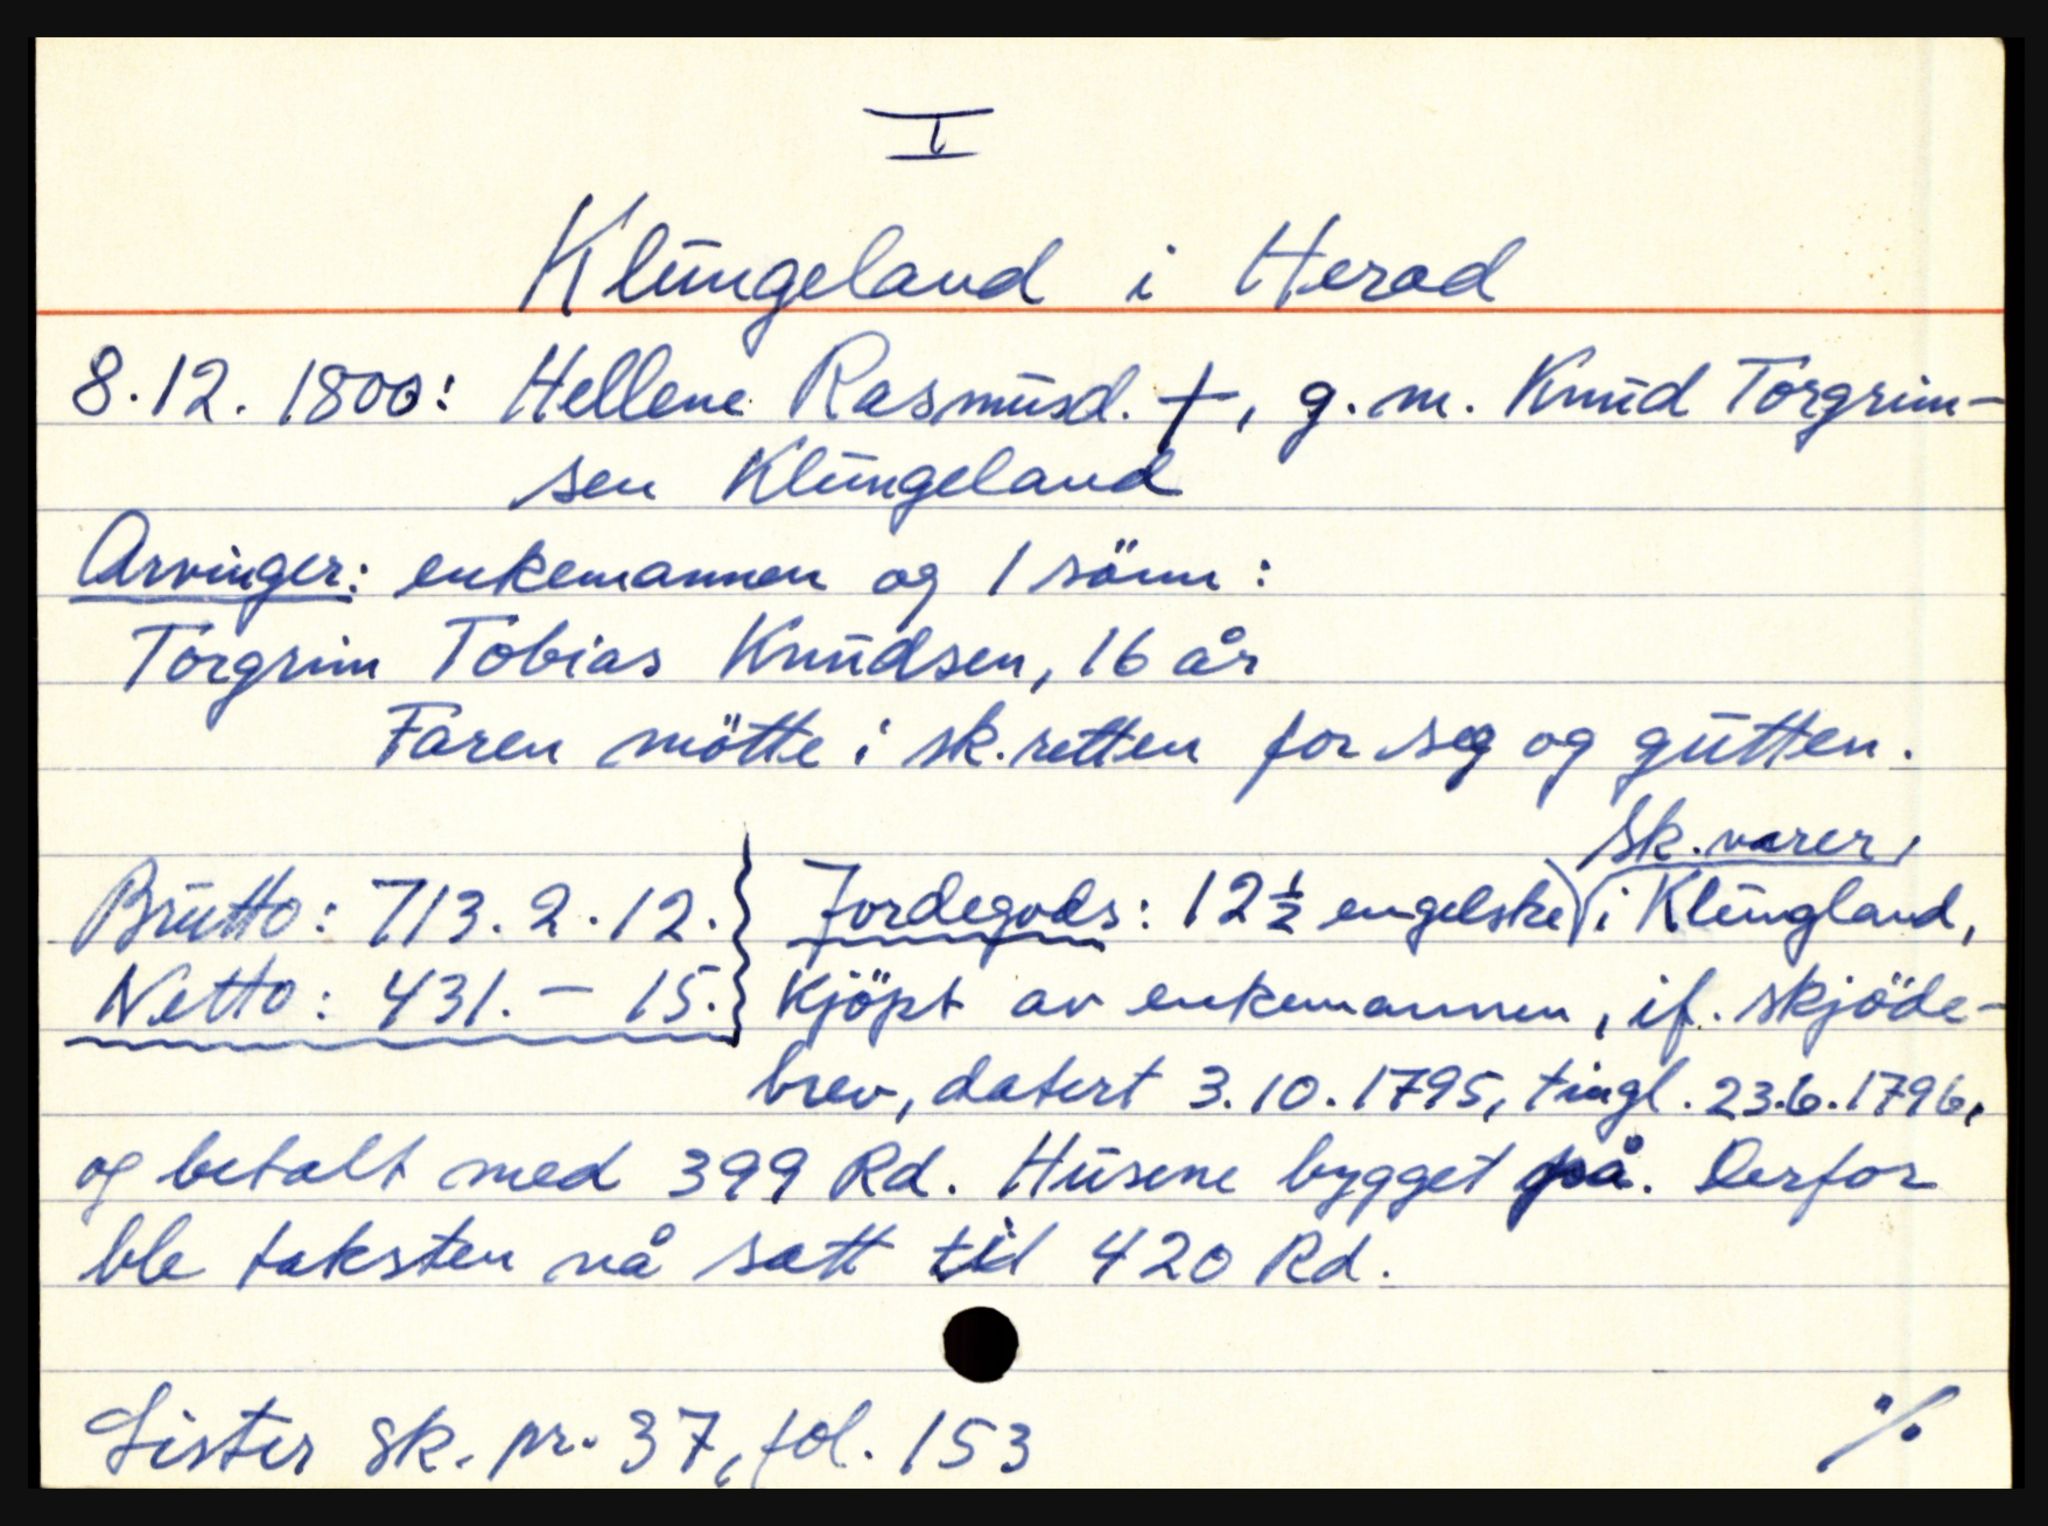 I
Klungeland i Herad
8.12. 1800: Hellene Rasmusd. †, g.m. Knud Torgrim-
sen Klungeland
Arvinger: enkemannen og 1 sönn:
Torgrim Tobias Knudsen, 16 år
Faren mötte i sk.retten for seg og gutten.
sk.varer,
Brutto: 713. 2. 12. Jordegods: 12 ½ engelske i Klungland,
Netto: 431. - 15. Kjöpt av enkemannen, if. skjöde-
brev, datert 3.10.1795, tingl. 23.6.1796,
og betalt med 399 Rd. Husene bygget på. Derfor
ble taksten nå satt til 420 Rd.
Lister sk. pr. 37, fol. 153
%